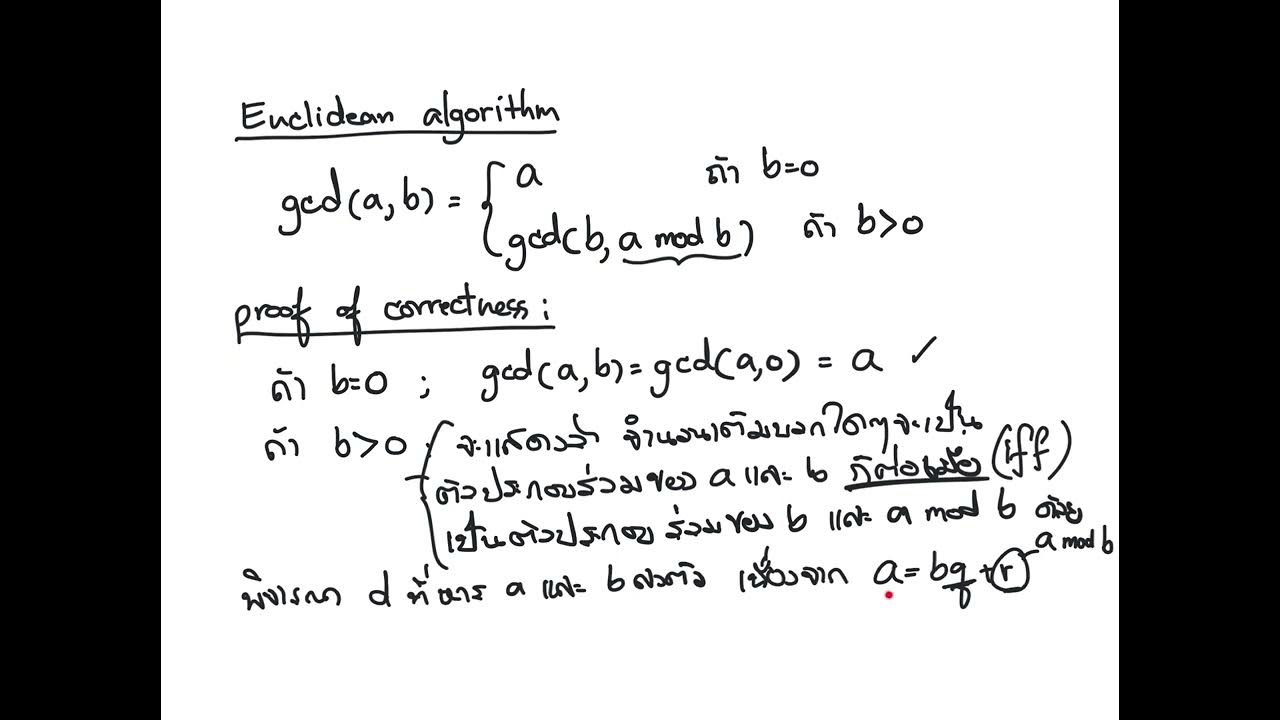 Euclidean algorithm
gcd(a, b) = { a ถ้า b=0
gcd(b, a mod b) ถ้า b>0
proof of correctness :
ถ้า b=0 ; gcd(a, b) = gcd(a, 0) = a ✓
ถ้า b>0 ; จะแสดงว่า จำนวนเต็มบวกใดๆ จะเป็น
ตัวประกอบร่วมของ a และ b ก็ต่อเมื่อ (iff)
เป็นตัวประกอบร่วมของ b และ a mod b ด้วย
a mod b
พิจารณา d ที่หาร a และ b ลงตัว เนื่องจาก a = bq + r